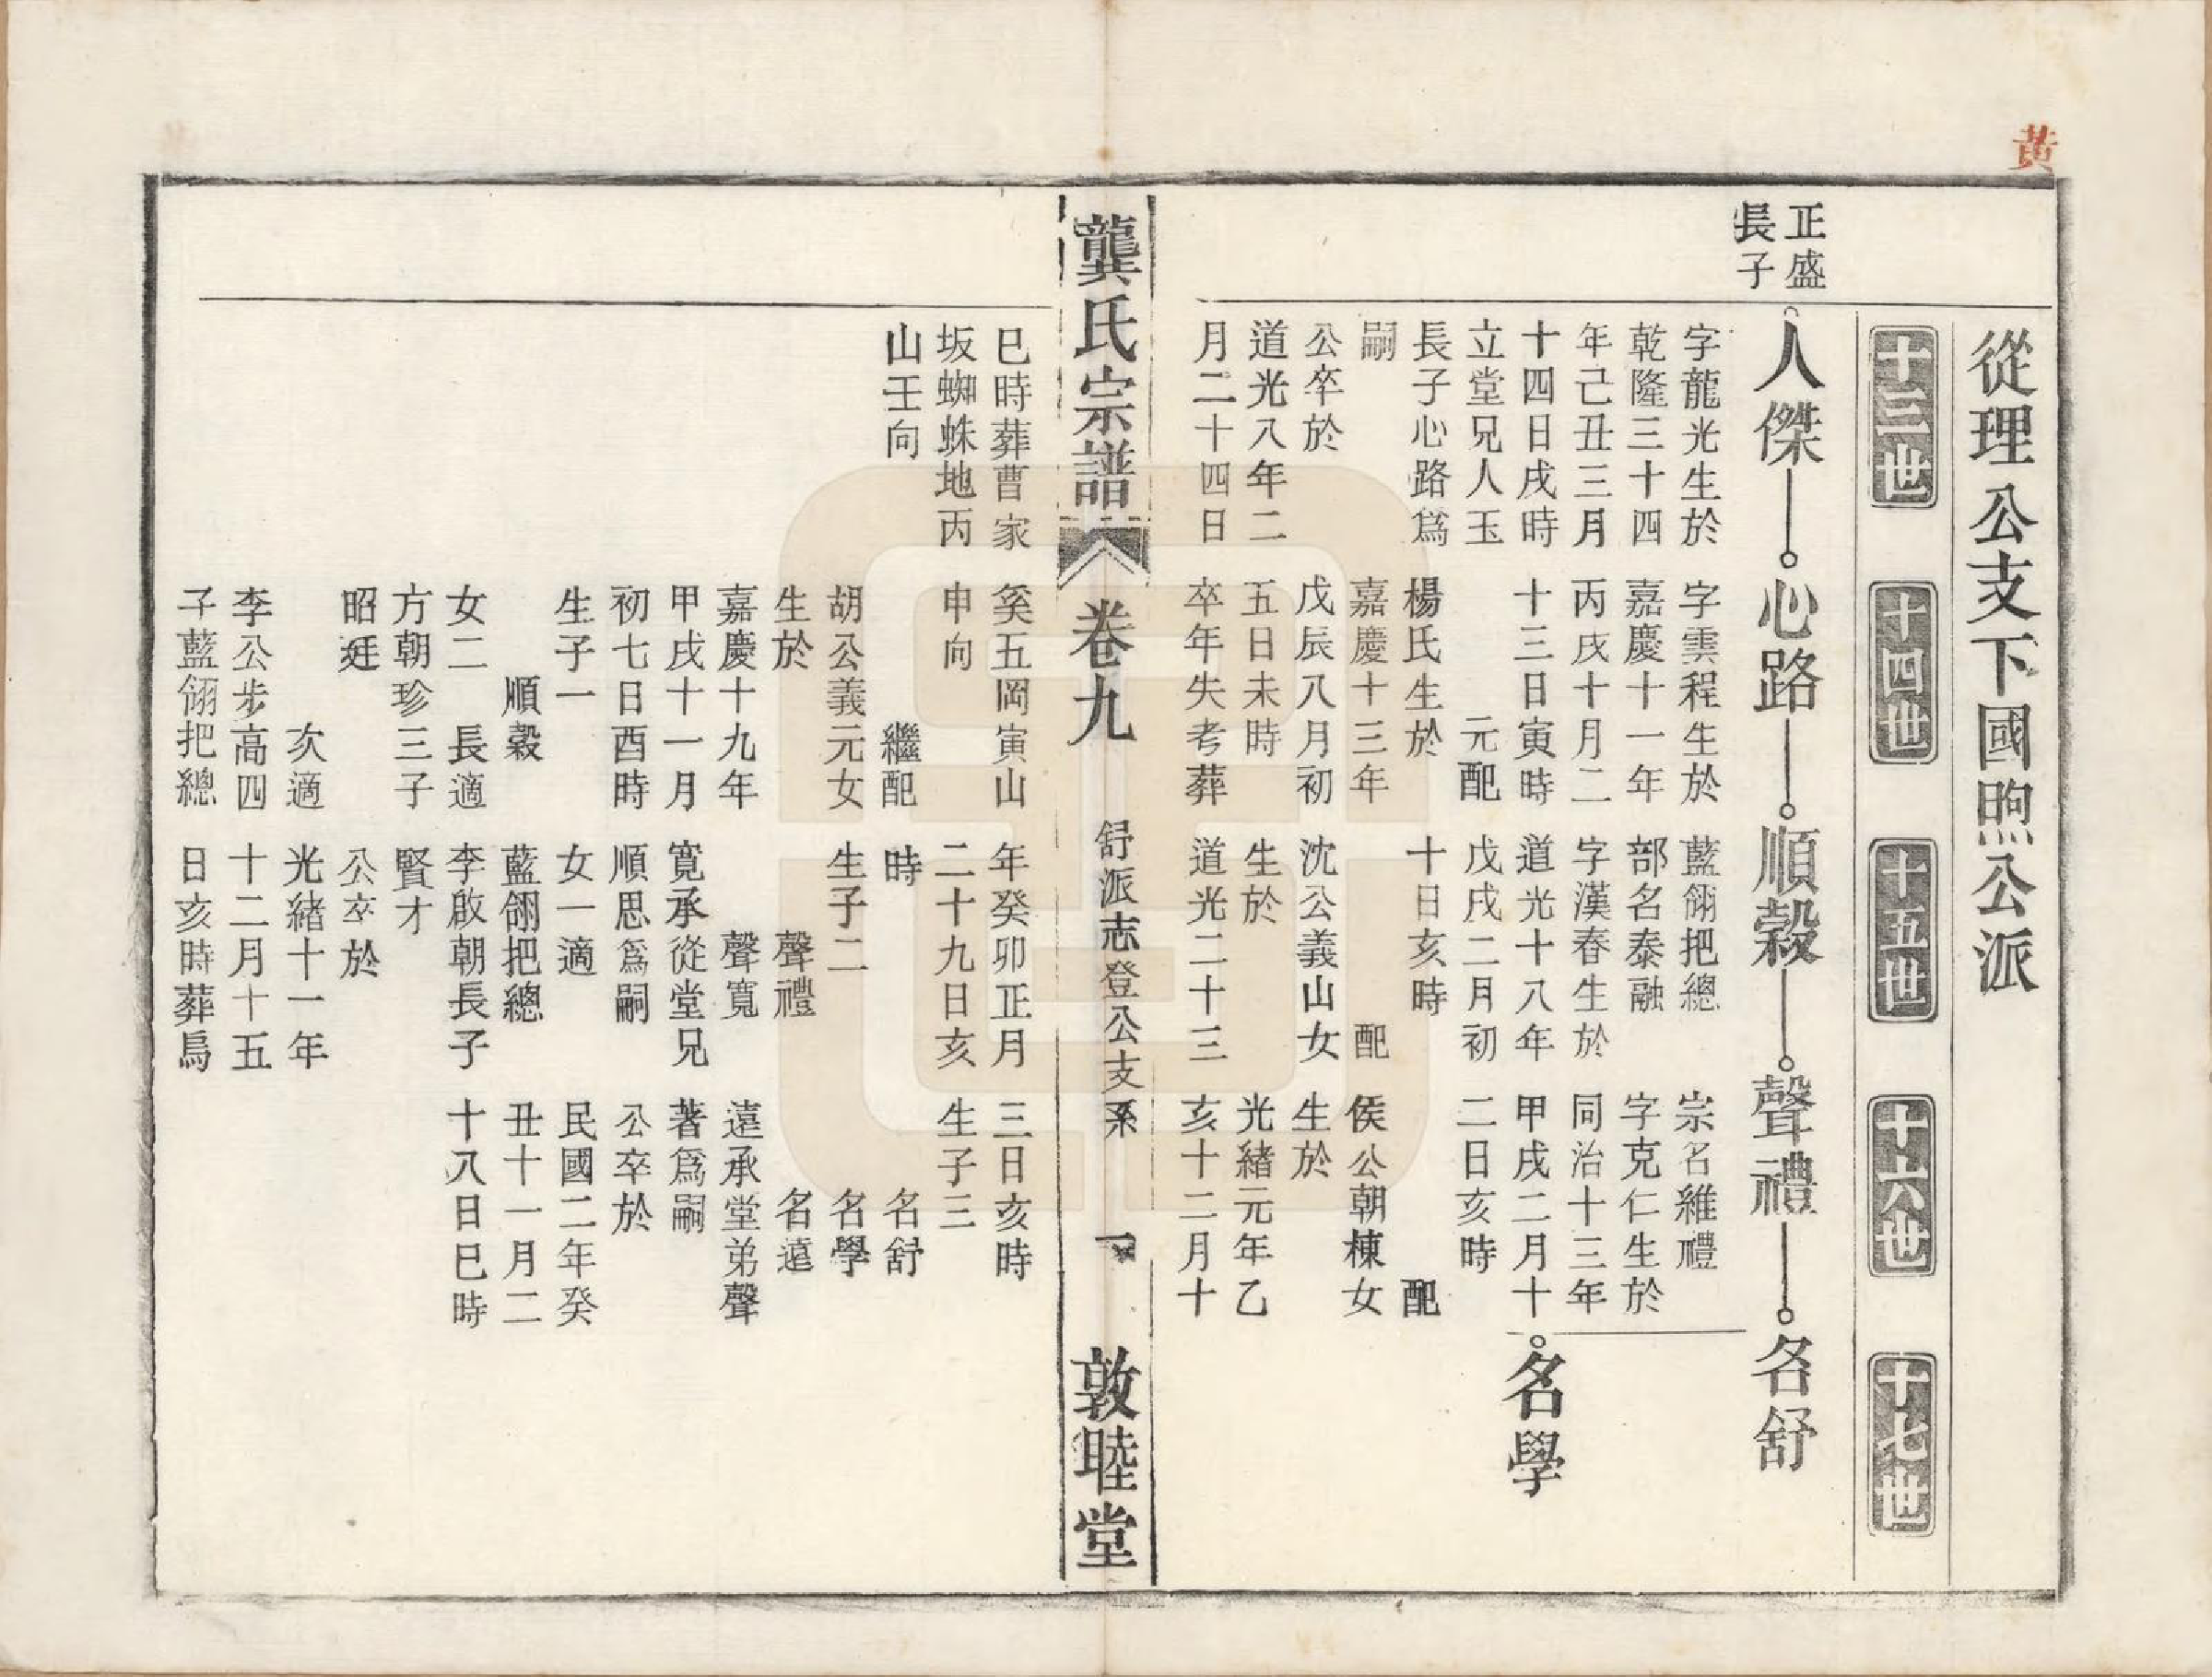 黃
從理公支下國煦公派
十三世
十四世
十五世
十六世
十七世
正盛
長子
人傑
心路
順穀
聲禮
名舒
名學
字龍光生於
乾隆三十四
年己丑三月
十四日戌時
立堂兄人玉
長子心路爲
嗣
公卒於
道光八年二
月二十四日
巳時葬曹家
坂蜘蛛地丙
山壬向
字雲程生於
嘉慶十一年
丙戌十月二
十三日寅時
元配
楊氏生於
嘉慶十三年
戊辰八月初
五日未時
卒年失考葬
奚五岡寅山
申向
繼配
胡公義元女
生於
嘉慶十九年
甲戌十一月
初七日酉時
生子一
順穀
女二 長適
方朝珍三子
昭廷
次適
李公步高四
子藍翎把總
藍翎把總
部名泰融
字漢春生於
道光十八年
戊戌二月初
十日亥時
配
沈公義山女
生於
道光二十三
年癸卯正月
二十九日亥
時
生子二
聲禮
聲寬
寬承從堂兄
順思爲嗣
女一適
藍翎把總
李啟朝長子
賢才
公卒於
光緒十一年
十二月十五
日亥時葬烏
宗名維禮
字克仁生於
同治十三年
甲戌二月十
二日亥時
配
侯公朝棟女
生於
光緒元年乙
亥十二月十
三日亥時
生子三
名舒
名學
名遠
遠承堂弟聲
著爲嗣
公卒於
民國二年癸
丑十一月二
十八日巳時
龔氏宗譜
卷九
舒派志登公支系
一
敦睦堂